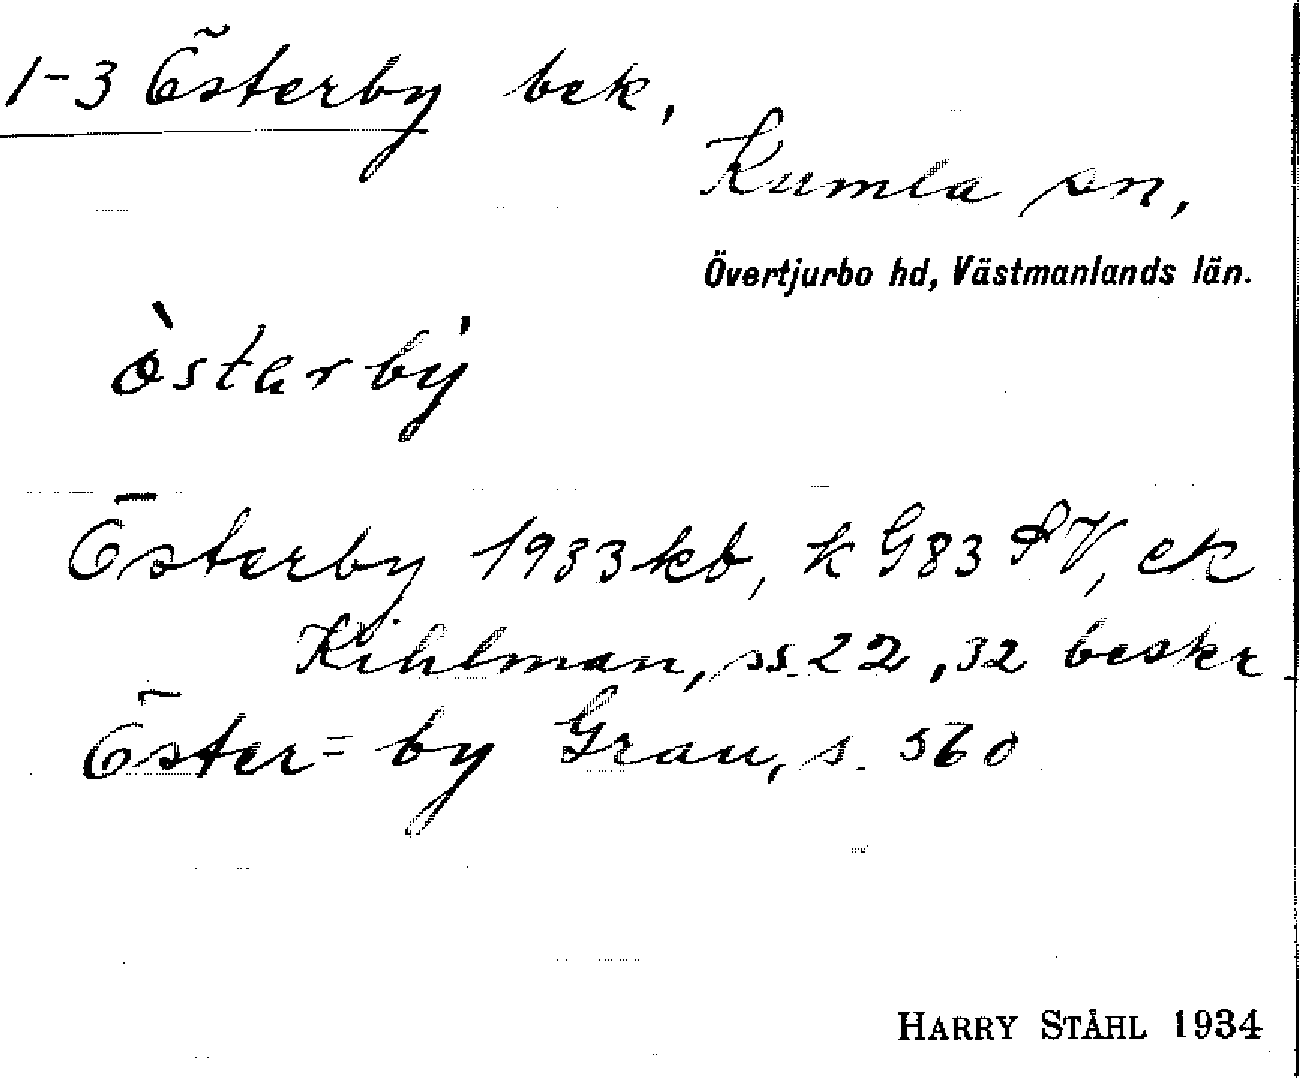 1-3 Österby bek,
Kumla sn,
Övertjurbo hd, Västmanlands län.
òstarbý
Österby 1933 kb, k G83 SV, ek
Kihlman, ss. 22, 32 beskr
Öster= by Grau, s. 560
HARRY STÅHL 1934